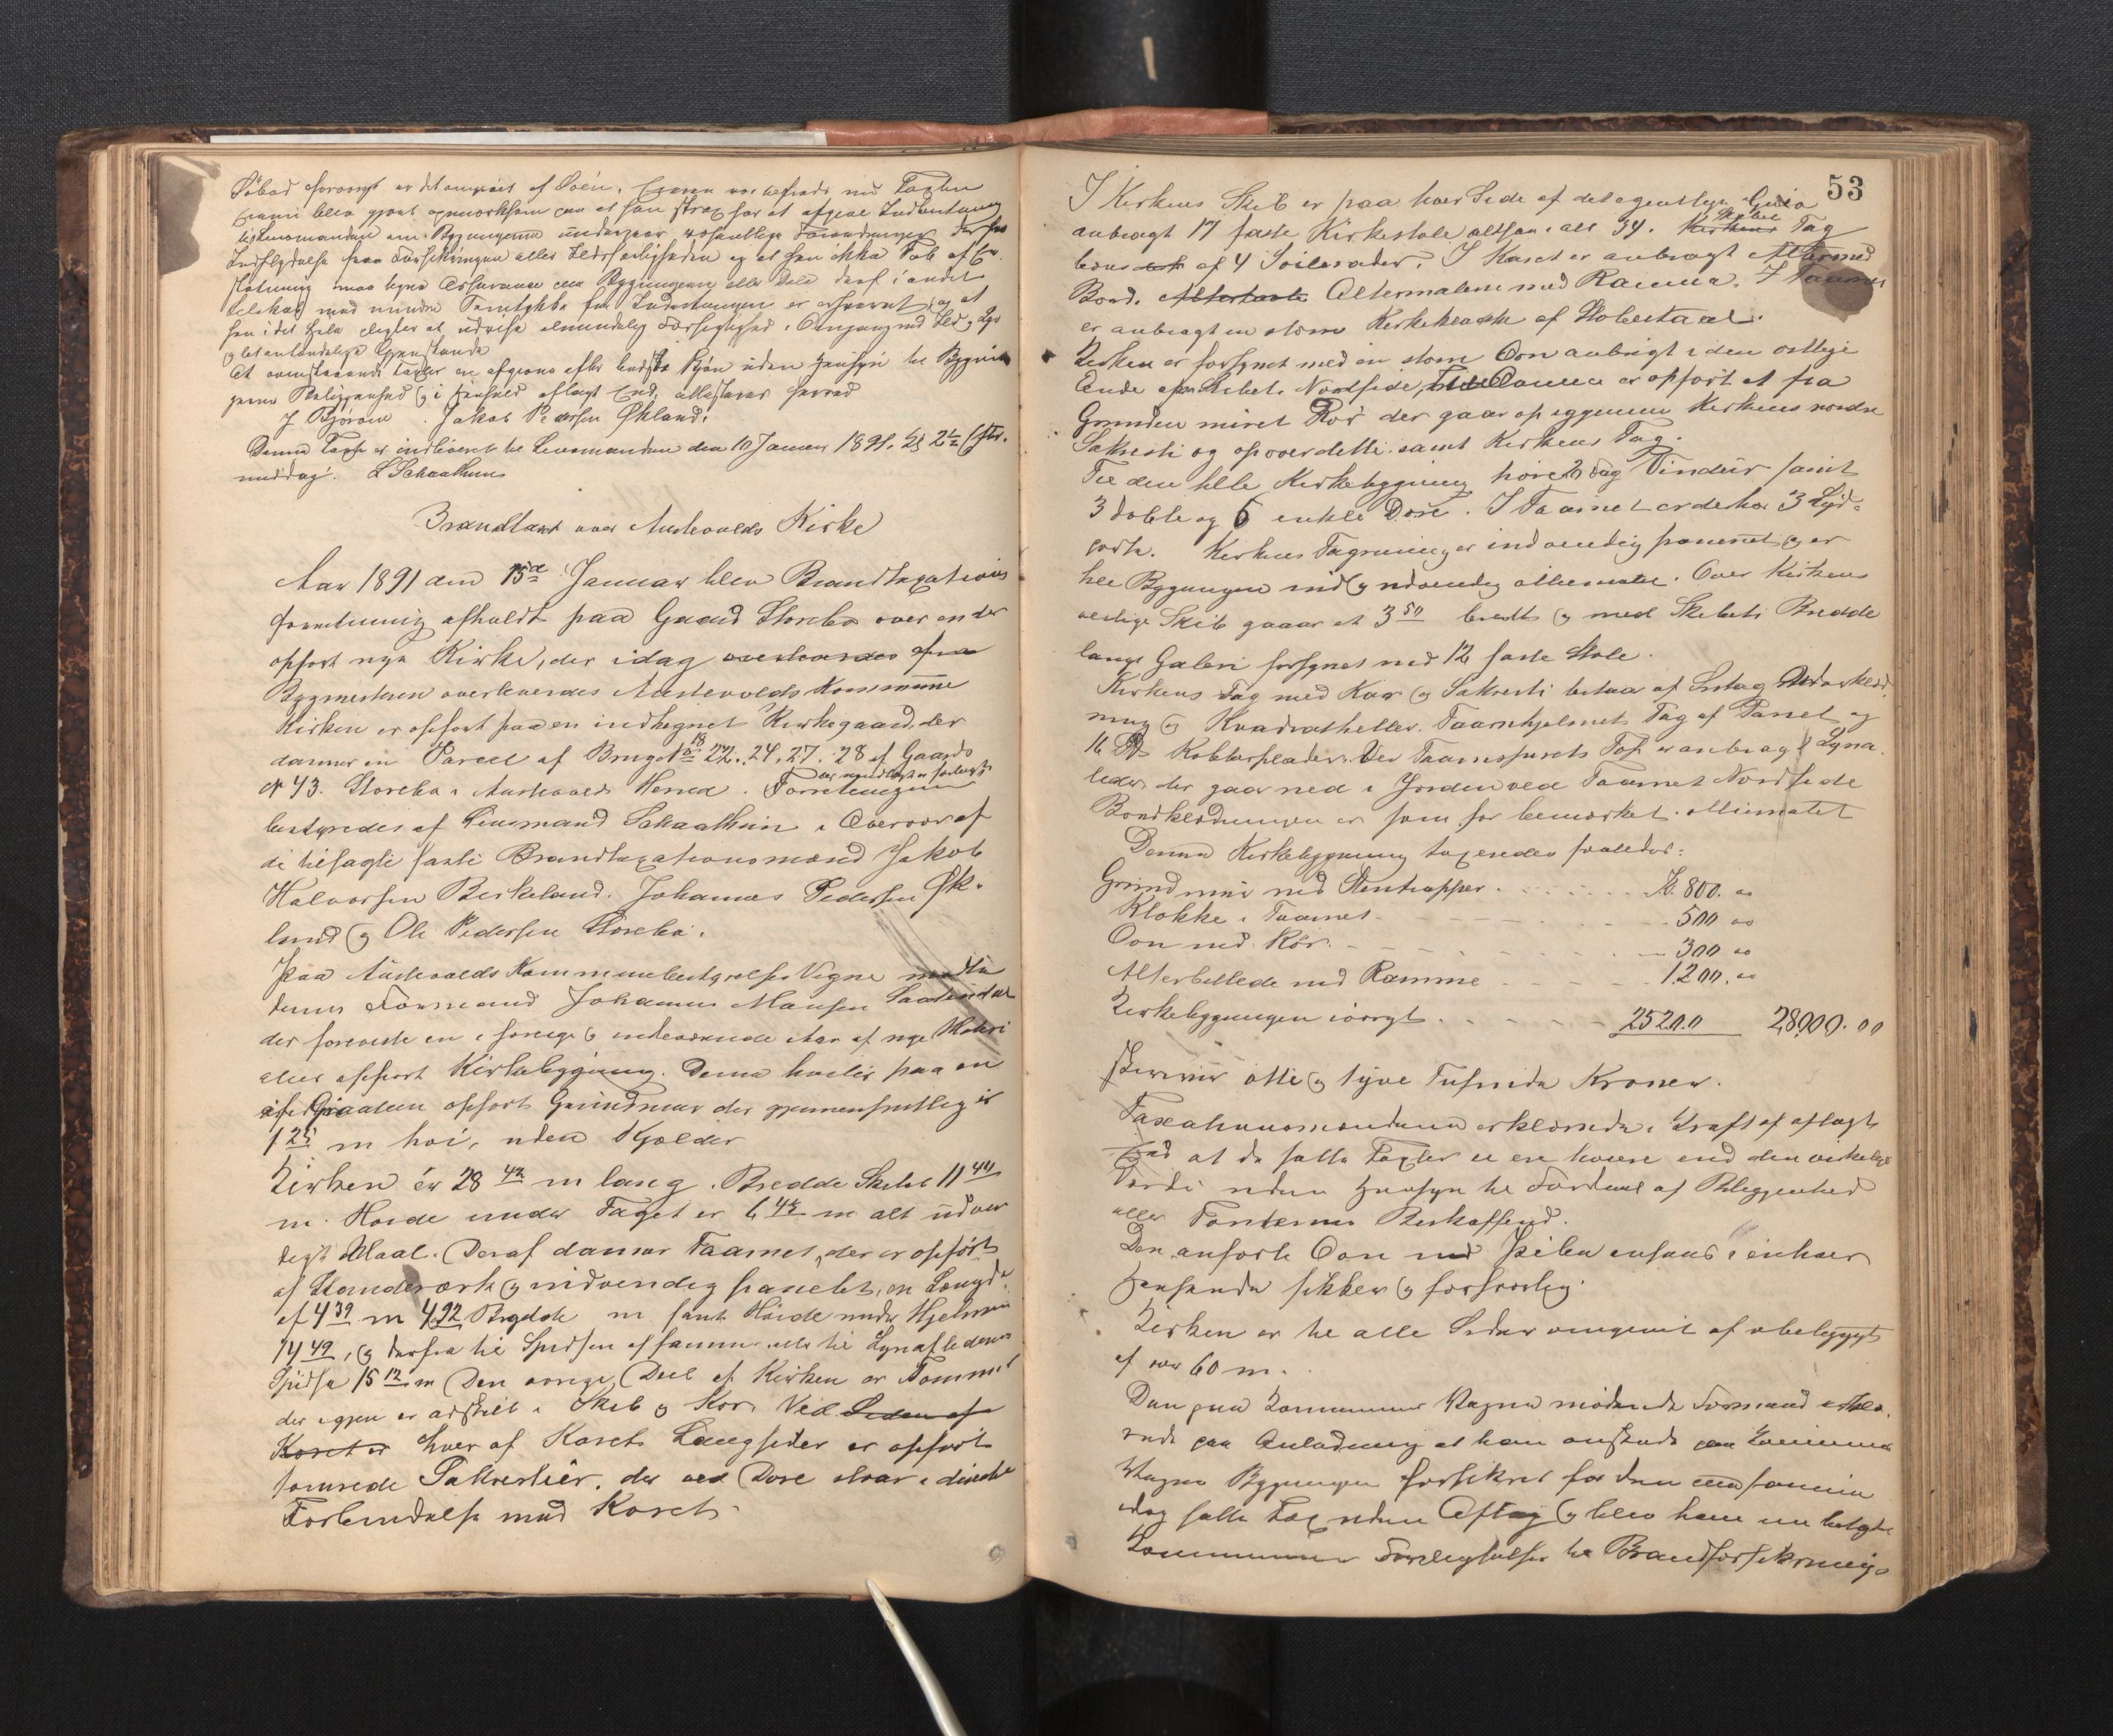 Søbod forøvrigt er det omgivet af Søen.
blev gjort opmærksom paa at han strax har at afgive Indberetning
Lensmanden om Bygningerne undergaar væsentlige Forandringer der har
Indflydelse paa Forsikringen eller Ildsfarligheden og at han ikke Tab af Er-
statning maa tegne Assurance paa Bygningerne eller Dele deraf i andet
Selskab med mindre Samtykke fra Indretningen er erhvervet, og at
han i det hele pligter at udvise almindelig Forsigtighed i Omgang med Ild, Lys
og let antændelige Gjenstande
At ovenstaaende Taxter er afgivne efter bedste Skjøn uden Hensyn til Bygnin
gernes Beliggenhed og i Henhold aflagt Eed, attesteres herved
J Bjørøen . Jakob Pedersen Økland.
Denne Taxt er indleveret til Lensmanden den 10 Januar 1891. Kl 2½ Efter-
middag. L Schaathun
Brandtaxt over Austevolds Kirke
Aar 1891 den 15de Januar blev Brandtaxations
forretning afholdt paa Gaard Storebø over en der
opført nye Kirke, der idag overleveredes af
Bygmesteren overleveredes Austevolds Kommune
Kirken er opført paa en indhegnet Kirkegaard, der
danner en Parcel af Brugets 18 22. 24. 27. 28 af Gaards
No 43. Storebø i Austevolds Herred. Forretningen
bestyredes af Lensmand Schaathun i Overvær af
de tilsagte faste Brandtaxationsmænd Jakob
Halvorsen Birkeland. Johannes Pedersen Øk-
land og Ole Pedersen Storebø.
Paa Austevolds Kommunebestyrelses Vegne mødte
dennes Formand Johannes Mansen
der foreviste en i forrige og indeværende Aar af nye Materi
aler opført Kirkebygning. Denne hviler paa en
af Graasten opført Grundmur der gjennemsnitlig er
1.25 m høi, uden Kjælder
Kirken er 28 42 m lang. Bredde Skibet 11 44
m. Høide under Taget er 6 45 m alt udven
digt Maal. Deraf danner Taarnet, der er opført
af Standerværk og indvendig panelet, en Længde
af 4 39 m 4.92 Bredde m samt Høide under Hjelmen
14 49, og derfra til Spidsen af samme eller til Lynaflederens
Spidse 15 12 m Den øvrige Deel af Kirken er Tømmer
der igjen er adskilt i Skib og Kor. Ved Siden af
Koret er hver af Korets Langsider er opført
tømrede Sakrestier, der ved Døre staar i directe
Forbindelse med Koret.
53
I Kirkens Skib er paa hver Side af det egentlige Gulv
anbragt 17 faste Kirkestole altsaa i alt 34. Kirkens Skibets Tag
bæres af 4 Søilerader. I Koret er anbragt Alter med
Bord. Altertavle Altermaleri med Ramme. I Taarnet
er anbragt en større Kirkeklokke af Støbestaal.
Kirken er forsynet med en større Ovn anbragt i den østlige
Ende af Skibets Nordside, Til Ovnen er opført et fra
Grunden muret Rør der gaar op igjennem Kirkens nordre
Sakresti og op over dette samt Kirkens Tag.
Til den hele Kirkebygning hører 2 Fag Vinduer samt
3 doble og 6 enkle Døre. I Taarnet er derhos 3 Lyd-
porte. Kirkens Tagrum er indvendig panelet og er
hele Bygningen ind og udvendig oliemalet. Over Kirkens
vestlige Skib gaaar et 3 50 bredt og med Skibets Bredde
langt Galeri forsynet med 12 faste Stole.
Kirkens Tag med Kor og Sakresti bestaar af Sutag Underklæd
ning og Kvadratheller. Taarnhjelmets Tag af Panel og
16 Kobberplader. Ved Taarnspirets Top er anbragt Lyna
leder, der gaar ned i Jorden ved Taarnet Nordside
Bordklædningen er som før bemærket oliemalet
Denne Kirkebygning taxeredes saaledes:
Grundmur med Stentrapper . . . . . . Kr. 800. 00
Klokke i Taarnet . - - - - - - 500 00
Ovn med Rør. - - - . . . - 300 00
Alterbillede med Ramme . . - - . 1.200. 00
Kirkebygningen iøvrigt . . - - - - 25200 28000.00
skriver otte og tyve Tusinde Kroner.
Taxationsmændene erklærede i Kraft af aflagt
Eed at de satte Taxter ei ere høiere end den virkelige
Værdi uden Hensyn til Fordeel af Beliggenhed
eller Tomternes Beskaffenhed.
Den anførte Ovn med Pibe ansees i enhver
Henseende sikker og forsvarlig.
Kirken er til alle Sider omgivet af ubebygget
af over 60 m.
Den paa Kommunens Vegne mødende Formand erklæ-
rede paa Anledning at han ønskede paa Kommunens
Vegne Bygningen forsikret for den
idag satte Tax uden Aftag og blev han
Kommunens Forpligtelser til Brandforsikrings